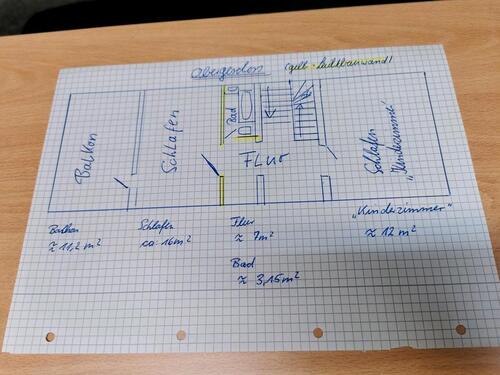 Obergeschoss
(gelb = Leichtbauwand)
Balkon
Schlafen
Bad
Flur
Schlafen
„Kinderzimmer"
Balkon
≈ 11,2 m²
Schlafen
ca. 16 m²
Flur
≈ 7 m²
Bad
≈ 3,15 m²
„Kinderzimmer"
≈ 12 m²